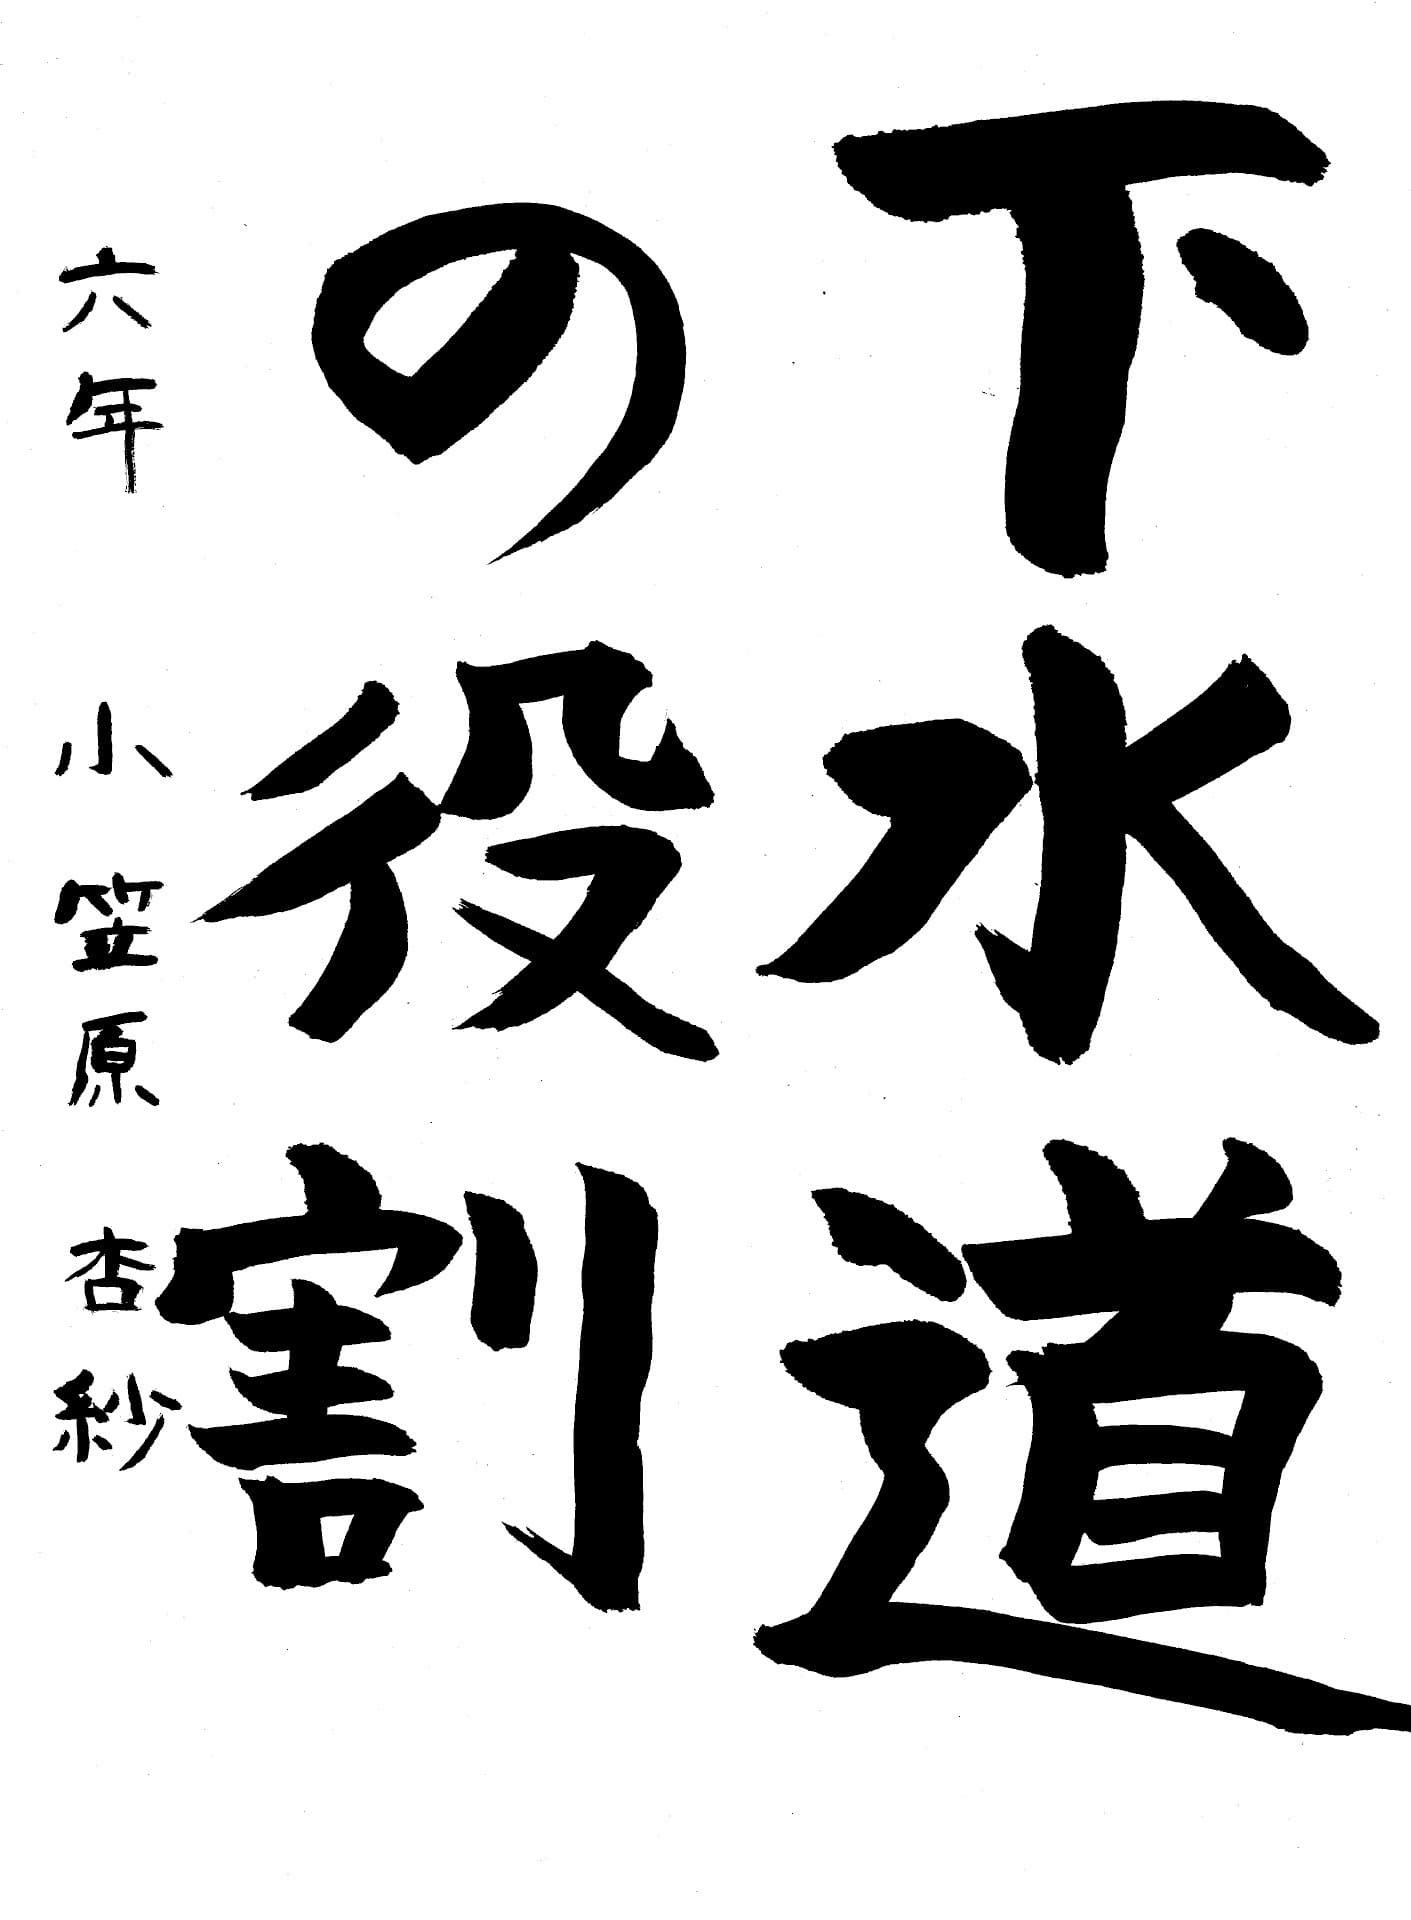 下水道
の役割
六年 小笠原 杏紗